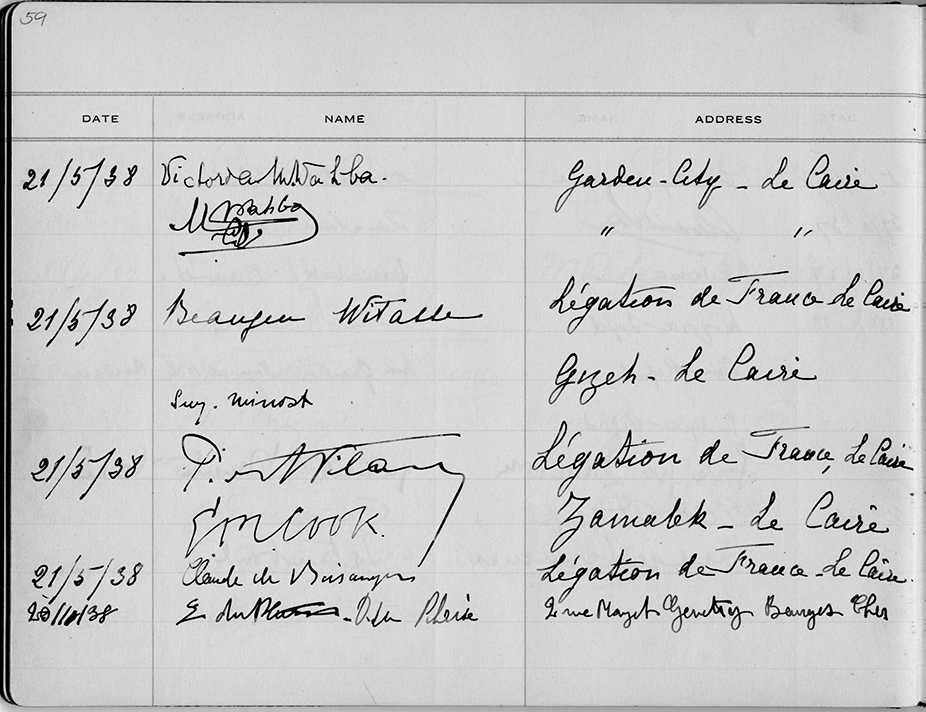 59
DATE NAME ADDRESS
21/5/38 Victoria Wahba. Garden-City - Le Caire
M Wahba " "
21/5/38 Witasse Légation de France Le Caire
Gizeh - Le Caire
Suz. Minost
21/5/38 Légation de France, Le Caire
E M Cook. Zamalek - Le Caire
21/5/38 Claude de Légation de France - Le Caire.
38 2 rue Bourges Cher